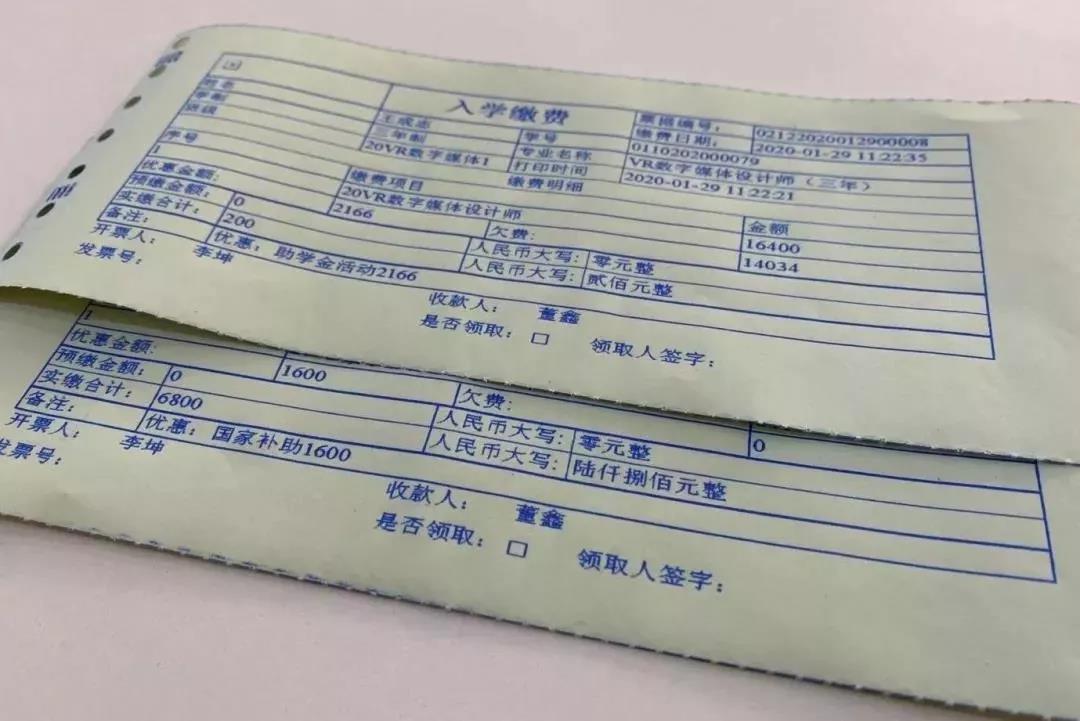 入学缴费
票据编号: 021220200012900008
姓名 王成志 学号 缴费日期: 2020-01-29 11:22:35
学制 三年制 专业名称 0110202000079
班级 20VR数字媒体1 打印时间 VR数字媒体设计师（三年）
缴费明细 2020-01-29 11:22:21
序号 缴费项目 金额
1 20VR数字媒体设计师 16400
优惠金额: 2166 欠费: 14034
预缴金额: 0 人民币大写: 零元整
实缴合计: 200 人民币大写: 贰佰元整
备注: 优惠: 助学金活动2166
开票人: 李坤 收款人: 董鑫
发票号: 是否领取: □ 领取人签字:
1
优惠金额: 1600 欠费: 0
预缴金额: 0 人民币大写: 零元整
实缴合计: 6800 人民币大写: 陆仟捌佰元整
备注: 优惠: 国家补助1600
开票人: 李坤 收款人: 董鑫
发票号: 是否领取: □ 领取人签字: